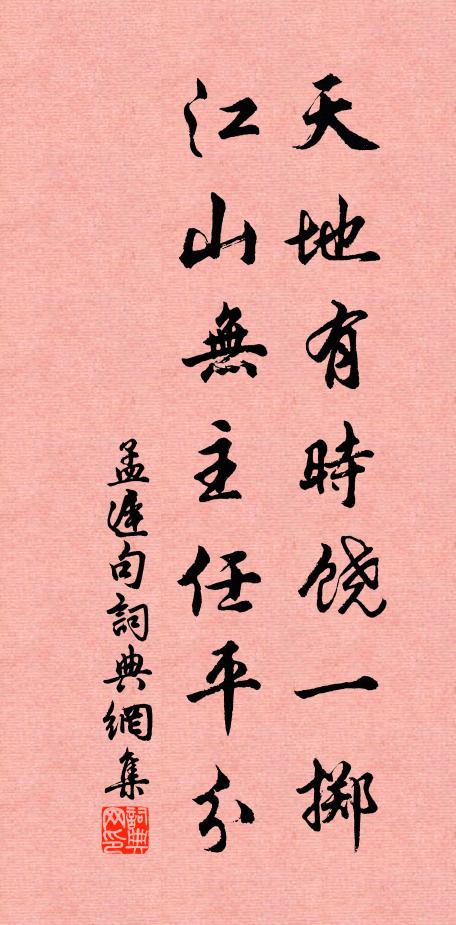 天地有時饒一擲
江山無主任平分
孟遲句詞典網集
詞典网印